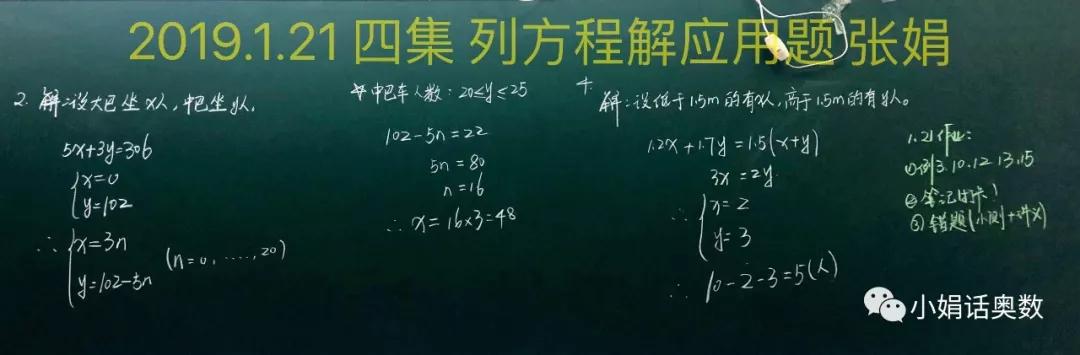 2019.1.21 四集 列方程解应用题 张娟
2. 解:设大巴坐x人,中巴坐y人.
5x+3y=306
{x=0
y=102
∴ {x=3n
y=102-5n
(n=0,……,20)
中巴车人数:20≤y≤25
102-5n=22
5n=80
n=16
∴ x=16×3=48
4.
解:设低于1.5m的有x人,高于1.5m的有y人。
1.2x+1.7y=1.5(x+y)
3x=2y
∴ {x=2
y=3
∴ 10-2-3=5(人)
1.21作业:
①例3.10.12.13.15
②笔记打卡!
③错题(小测+讲义)
小娟话奥数